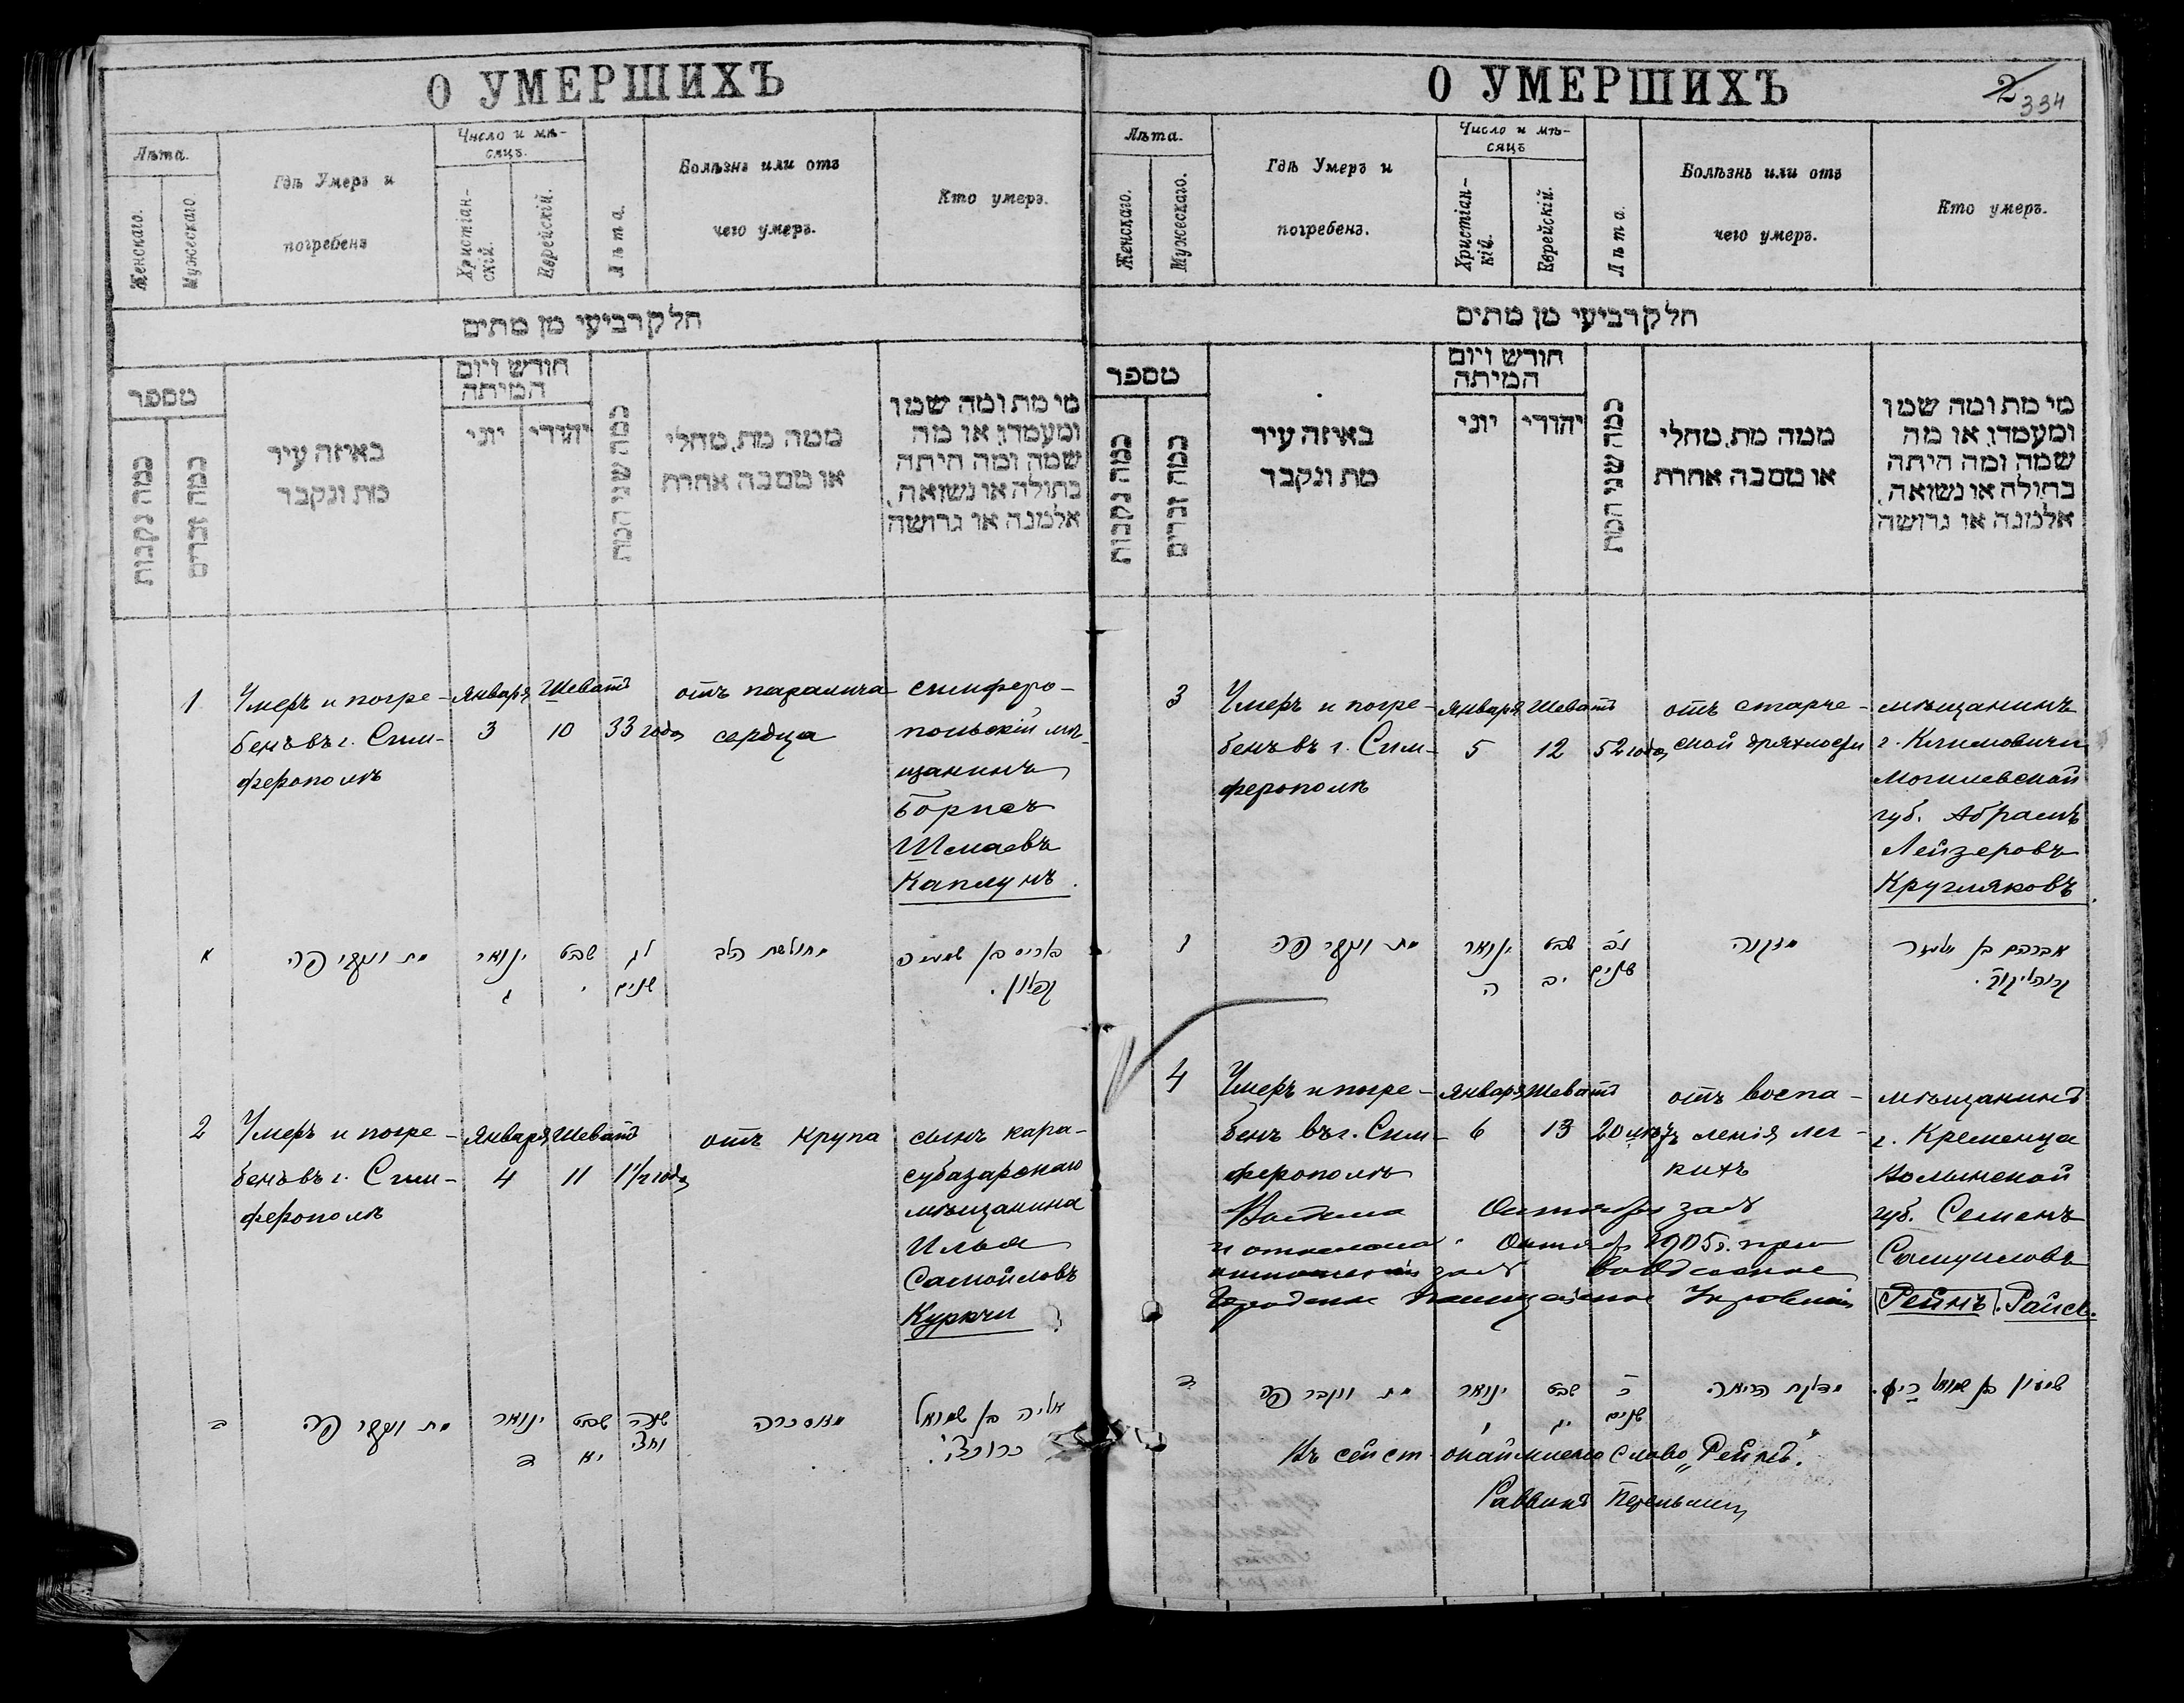 О УМЕРШИХЪ
Лѣта.
Женскаго.
Мужескаго.
Гдѣ Умеръ и
погребенъ
Число и мѣ-
сяцъ.
Христіан-
скій.
Еврейскій.
Лѣта.
Болѣзнь или отъ
чего умеръ.
Кто умеръ.
חלק רביעי מן מתים
מספר
כמה נקבות
כמה זכרים
באיזה עיר
מת ונקבר
חודש ויום
המיתה
יוני
יהודי
כמה שני המת
ממה מת, מחלי
או מסבה אחרת
מי מת ומה שמו
ומעמדו, או מה
שמה ומה היתה
בתולה או נשואה,
אלמנה או גרושה
1
Умеръ и погре-
бенъ въ г. Сим-
ферополѣ
Января
3
Шеватъ
10
33 года
отъ паралича
сердца
симферо-
польскій мѣ-
щанинъ
Борисъ
Шмаевъ
Каплунъ.
א
מת ונקבר פה
ינואר
ג
שבט
י
לג
שנים
מחולשת הלב
באריס בן שמעי׳
קפלון.
2
Умеръ и погре-
бенъ въ г. Сим-
ферополѣ
Января
4
Шеватъ
11
1 1/2 года
отъ крупа
сынъ кара-
субазарскаго
мѣщанина
Илья
Самойловъ
Куркчи
ב
מת ונקבר פה
ינואר
ד
שבט
יא
שנה
וחצי
מאסכרה
אליה בן שמואל
О УМЕРШИХЪ
2
334
Лѣта.
Женскаго.
Мужескаго.
Гдѣ Умеръ и
погребенъ.
Число и мѣ-
сяцъ
Христіан-
кій.
Еврейскій.
Лѣта.
Болѣзнь или отъ
чего умеръ.
Кто умеръ.
חלק רביעי מן מתים
מספר
כמה נקבות
כמה זכרים
באיזה עיר
מת ונקבר
חודש ויום
המיתה
יוני
יהודי
כמה שני המת
ממה מת, מחלי
או מסבה אחרת
מי מת ומה שמו
ומעמדו, או מה
שמה ומה היתה
בתולה או נשואה,
אלמנה או גרושה
3
Умеръ и погре-
бенъ въ г. Сим-
ферополѣ
Января
5
Шеватъ
12
52 года
отъ старче-
ской дряхлости
мѣщанинъ
г. Климовичи
Могилевской
губ. Абрамъ
Лейзеровъ
Кругляковъ.
ג
מת ונקבר פה
ינואר
ה
שבט
יב
נב
שנים
מזקנה
אברהם בן אליעזר
4
Умеръ и погре-
бенъ въ г. Сим-
ферополѣ
Января
6
Шеватъ
13
20 лѣтъ
отъ воспа-
ленія лег-
кихъ
мѣщанинъ
г. Кременца
Волынской
губ. Семенъ
Самуиловъ
Рейнъ. Райск.
1905 г.
ד
מת ונקבר פה
ינואר
ו
שבט
יג
כ
שנים
מדלקת הריאה
שמעון בן שמואל ריין.
Въ сей ст. окаймлено слово „Рейнъ".
Раввинъ